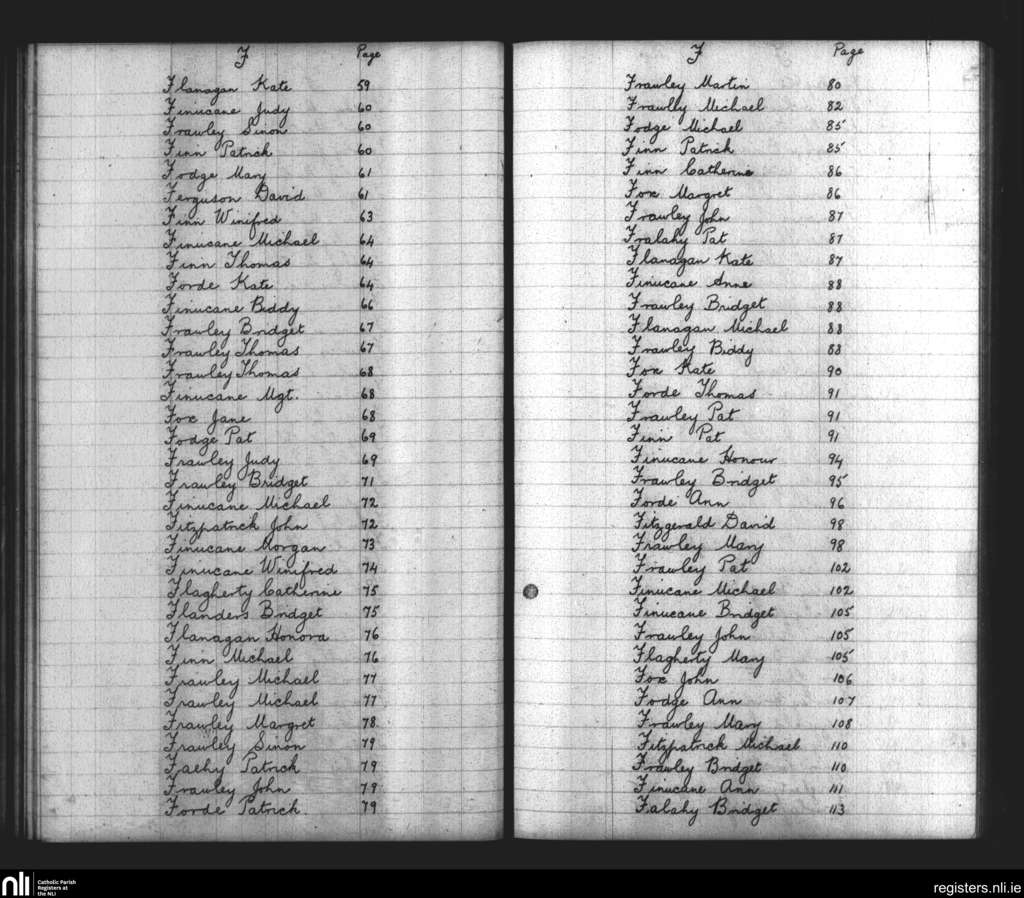 F Page
Flanagan Kate 59
Finucane Judy 60
Frawley Sinon 60
Finn Patrick 60
Fodge Mary 61
Ferguson David 61
Finn Winifred 63
Finucane Michael 64
Finn Thomas 64
Forde Kate 64
Finucane Biddy 66
Frawley Bridget 67
Frawley Thomas 67
Frawley Thomas 68
Finucane Mgt. 68
Fox Jane 68
Fodge Pat 69
Frawley Judy 69
Frawley Bridget 71
Finucane Michael 72
Fitzpatrick John 72
Finucane Morgan 73
Finucane Winifred 74
Flagherty Catherine 75
Flanders Bridget 75
Flanagan Honora 76
Finn Michael 76
Frawley Michael 77
Frawley Michael 77
Frawley Margret 78
Frawley Sinon 79
Faehy Patrick 79
Frawley John 79
Forde Patrick 79
F Page
Frawley Martin 80
Frawlly Michael 82
Fodge Michael 85
Finn Patrick 85
Finn Catherine 86
Fox Margret 86
Frawley John 87
Fralahy Pat 87
Flanagan Kate 87
Finucane Anne 88
Frawley Bridget 88
Flanagan Michael 88
Frawley Biddy 88
Fox Kate 90
Forde Thomas 91
Frawley Pat 91
Finn Pat 91
Finucane Honour 94
Frawley Bridget 95
Forde Ann 96
Fitzgerald David 98
Frawley Mary 98
Frawley Pat 102
Finucane Michael 102
Finucane Bridget 105
Frawley John 105
Flagherty Mary 105
Fox John 106
Fodge Ann 107
Frawley Mary 108
Fitzpatrick Michael 110
Frawley Bridget 110
Finucane Ann 111
Falahy Bridget 113
nli Catholic Parish
Registers at
the NLI
registers.nli.ie